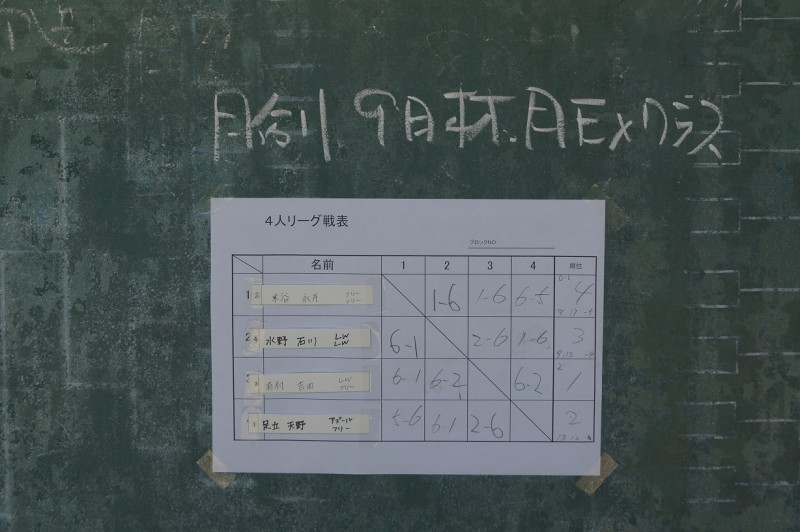 月例 9月杯 月Exクラス
4人リーグ戦表
ブロックNO
名前 1 2 3 4 順位
1 永井 フリー フリー 1-6 1-6 6-5 4
2 水野 石川 L-W L-W 6-1 2-6 1-6 3
3 吉田 L-W フリー 6-1 6-2 6-2 1
足立 天野 フリー 5-6 6-1 2-6 2